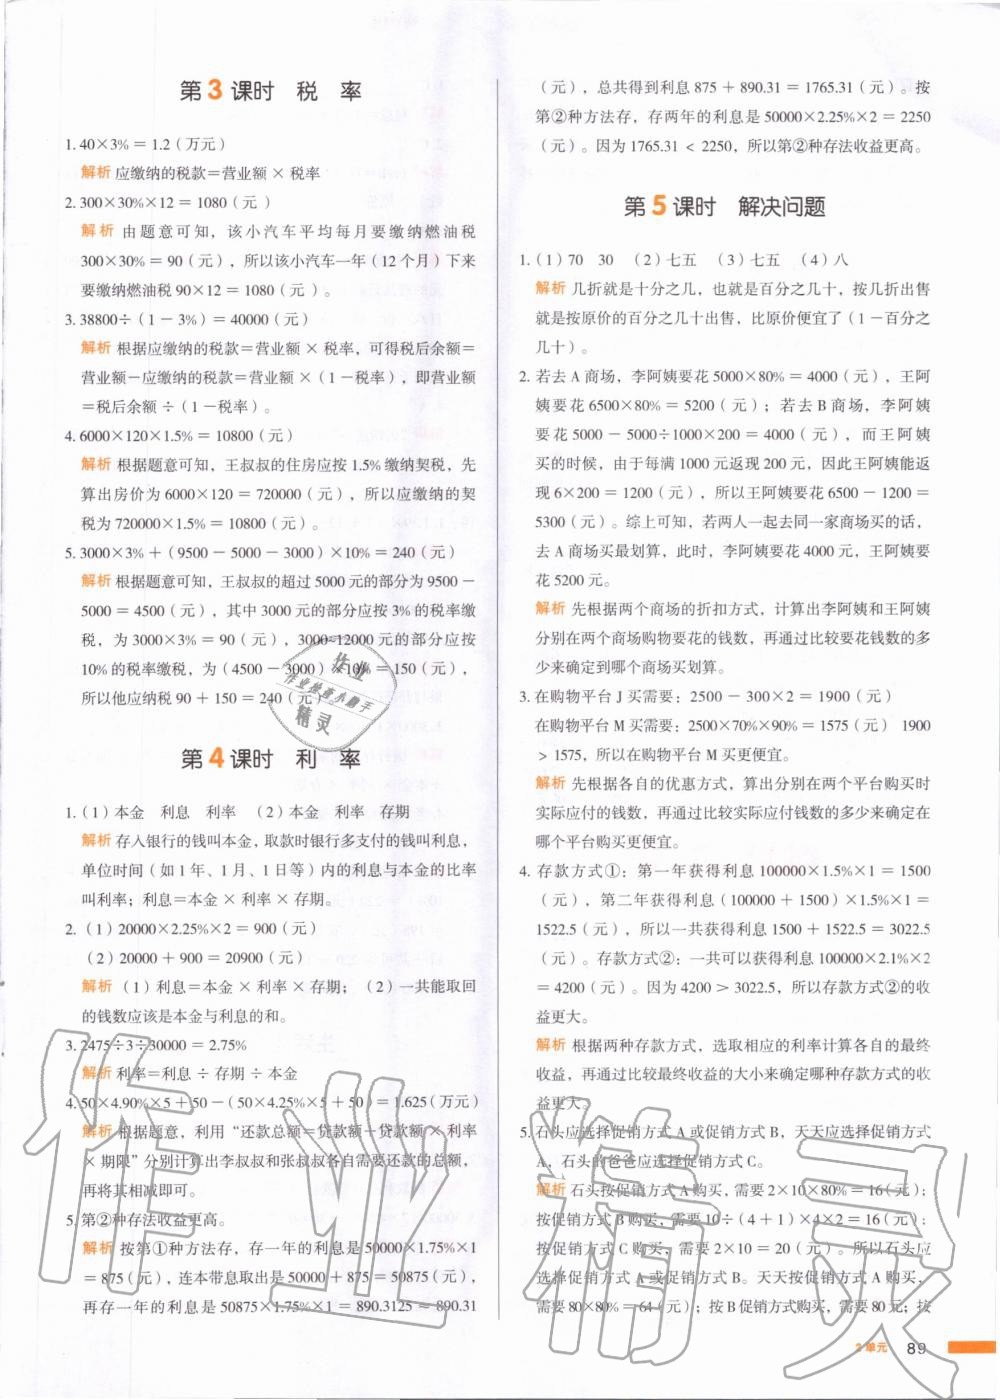 第3课时 税 率
1. 40×3% = 1.2（万元）
解析 应缴纳的税款=营业额 × 税率
2. 300×30%×12 = 1080（元 ）
解析 由题意可知，该小汽车平均每月要缴纳燃油税
300×30% = 90（元），所以该小汽车一年（12 个月）下来
要缴纳燃油税 90×12 = 1080（元 ）。
3. 38800÷（1 - 3%）= 40000（元）
解析 根据应缴纳的税款=营业额 × 税率，可得税后余额=
营业额－应缴纳的税款=营业额 ×（1－税率），即营业额
=税后余额 ÷（1－税率）。
4. 6000×120×1.5% = 10800（元）
解析 根据题意可知，王叔叔的住房应按 1.5% 缴纳契税，先
算出房价为 6000×120 = 720000（元），所以应缴纳的契
税为 720000×1.5% = 10800（元）。
5. 3000×3% +（9500 - 5000 - 3000）×10% = 240（元）
解析 根据题意可知，王叔叔的超过 5000 元的部分为 9500 -
5000 = 4500（元），其中 3000 元的部分应按 3% 的税率缴
税，为 3000×3% = 90（元），3000~12000 元的部分应按
10% 的税率缴税，为（4500 - 3000）×10% = 150（元），
所以他应纳税 90 + 150 = 240（元）。
第4课时 利 率
1.（1）本金 利息 利率 （2）本金 利率 存期
解析 存入银行的钱叫本金，取款时银行多支付的钱叫利息，
单位时间（如 1 年、1 月、1 日等）内的利息与本金的比率
叫利率；利息=本金 × 利率 × 存期。
2.（1）20000×2.25%×2 = 900（元）
（2）20000 + 900 = 20900（元）
解析 （1）利息=本金 × 利率 × 存期；（2）一共能取回
的钱数应该是本金与利息的和。
3. 2475÷3÷30000 = 2.75%
解析 利率=利息 ÷ 存期 ÷ 本金
4. 50×4.90%×5 + 50 -（50×4.25%×5 + 50）= 1.625（万元）
解析 根据题意，利用“还款总额=贷款额+贷款额 × 利率
× 期限”分别计算出李叔叔和张叔叔各自需要还款的总额，
再将其相减即可。
5. 第②种存法收益更高。
解析 按第①种方法存，存一年的利息是 50000×1.75%×1
= 875（元），连本带息取出是 50000 + 875 = 50875（元），
再存一年的利息是 50875×1.75%×1 = 890.3125 ≈ 890.31
（元），总共得到利息 875 + 890.31 = 1765.31（元）。按
第②种方法存，存两年的利息是 50000×2.25%×2 = 2250
（元）。因为 1765.31 < 2250，所以第②种存法收益更高。
第5课时 解决问题
1.（1）70 30 （2）七五 （3）七五 （4）八
解析 几折就是十分之几，也就是百分之几十，按几折出售
就是按原价的百分之几十出售，比原价便宜了（1－百分之
几十）。
2. 若去 A 商场，李阿姨要花 5000×80% = 4000（元），王阿
姨要花 6500×80% = 5200（元）；若去 B 商场，李阿姨
要花 5000 - 5000÷1000×200 = 4000（元），而王阿姨
买的时候，由于每满 1000 元返现 200 元，因此王阿姨能返
现 6×200 = 1200（元），所以王阿姨要花 6500 - 1200 =
5300（元）。综上可知，若两人一起去同一家商场买的话，
去 A 商场买最划算，此时，李阿姨要花 4000 元，王阿姨要
花 5200 元。
解析 先根据两个商场的折扣方式，计算出李阿姨和王阿姨
分别在两个商场购物要花的钱数，再通过比较要花钱数的多
少来确定到哪个商场买划算。
3. 在购物平台 J 买需要：2500 - 300×2 = 1900（元）
在购物平台 M 买需要：2500×70%×90% = 1575（元） 1900
> 1575，所以在购物平台 M 买更便宜。
解析 先根据各自的优惠方式，算出分别在两个平台购买时
实际应付的钱数，再通过比较实际应付钱数的多少来确定在
哪个平台购买更便宜。
4. 存款方式①：第一年获得利息 100000×1.5%×1 = 1500
（元），第二年获得利息（100000 + 1500）×1.5%×1 =
1522.5（元），所以一共获得利息 1500 + 1522.5 = 3022.5
（元）。存款方式②：一共可以获得利息 100000×2.1%×2
= 4200（元）。因为 4200 > 3022.5，所以存款方式②的收
益更大。
解析 根据两种存款方式，选取相应的利率计算各自的最终
收益，再通过比较最终收益的大小来确定哪种存款方式的收
益更大。
5. 石头应选择促销方式 A 或促销方式 B，天天应选择促销方式
A，石头的爸爸应选择促销方式 C。
解析 石头按促销方式 A 购买，需要 2×10×80% = 16（元）；
按促销方式 B 购买，需要 10÷（4 + 1）×4×2 = 16（元）；
按促销方式 C 购买，需要 2×10 = 20（元）。所以石头应
选择促销方式 A 或促销方式 B。天天按促销方式 A 购买，
需要 80×80% = 64（元）；按 B 促销方式购买，需要 80 元；按
2 单元 89
作业
作业检查小助手
精灵
作业精灵